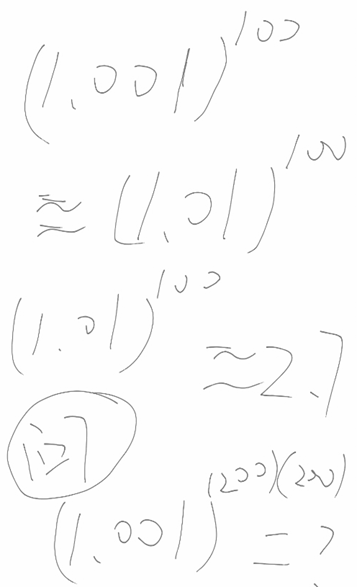 (1.001)^100
≈ (1.01)^100
(1.01)^100 ≈ 2.7
(1.001)^(200)(200) = ?